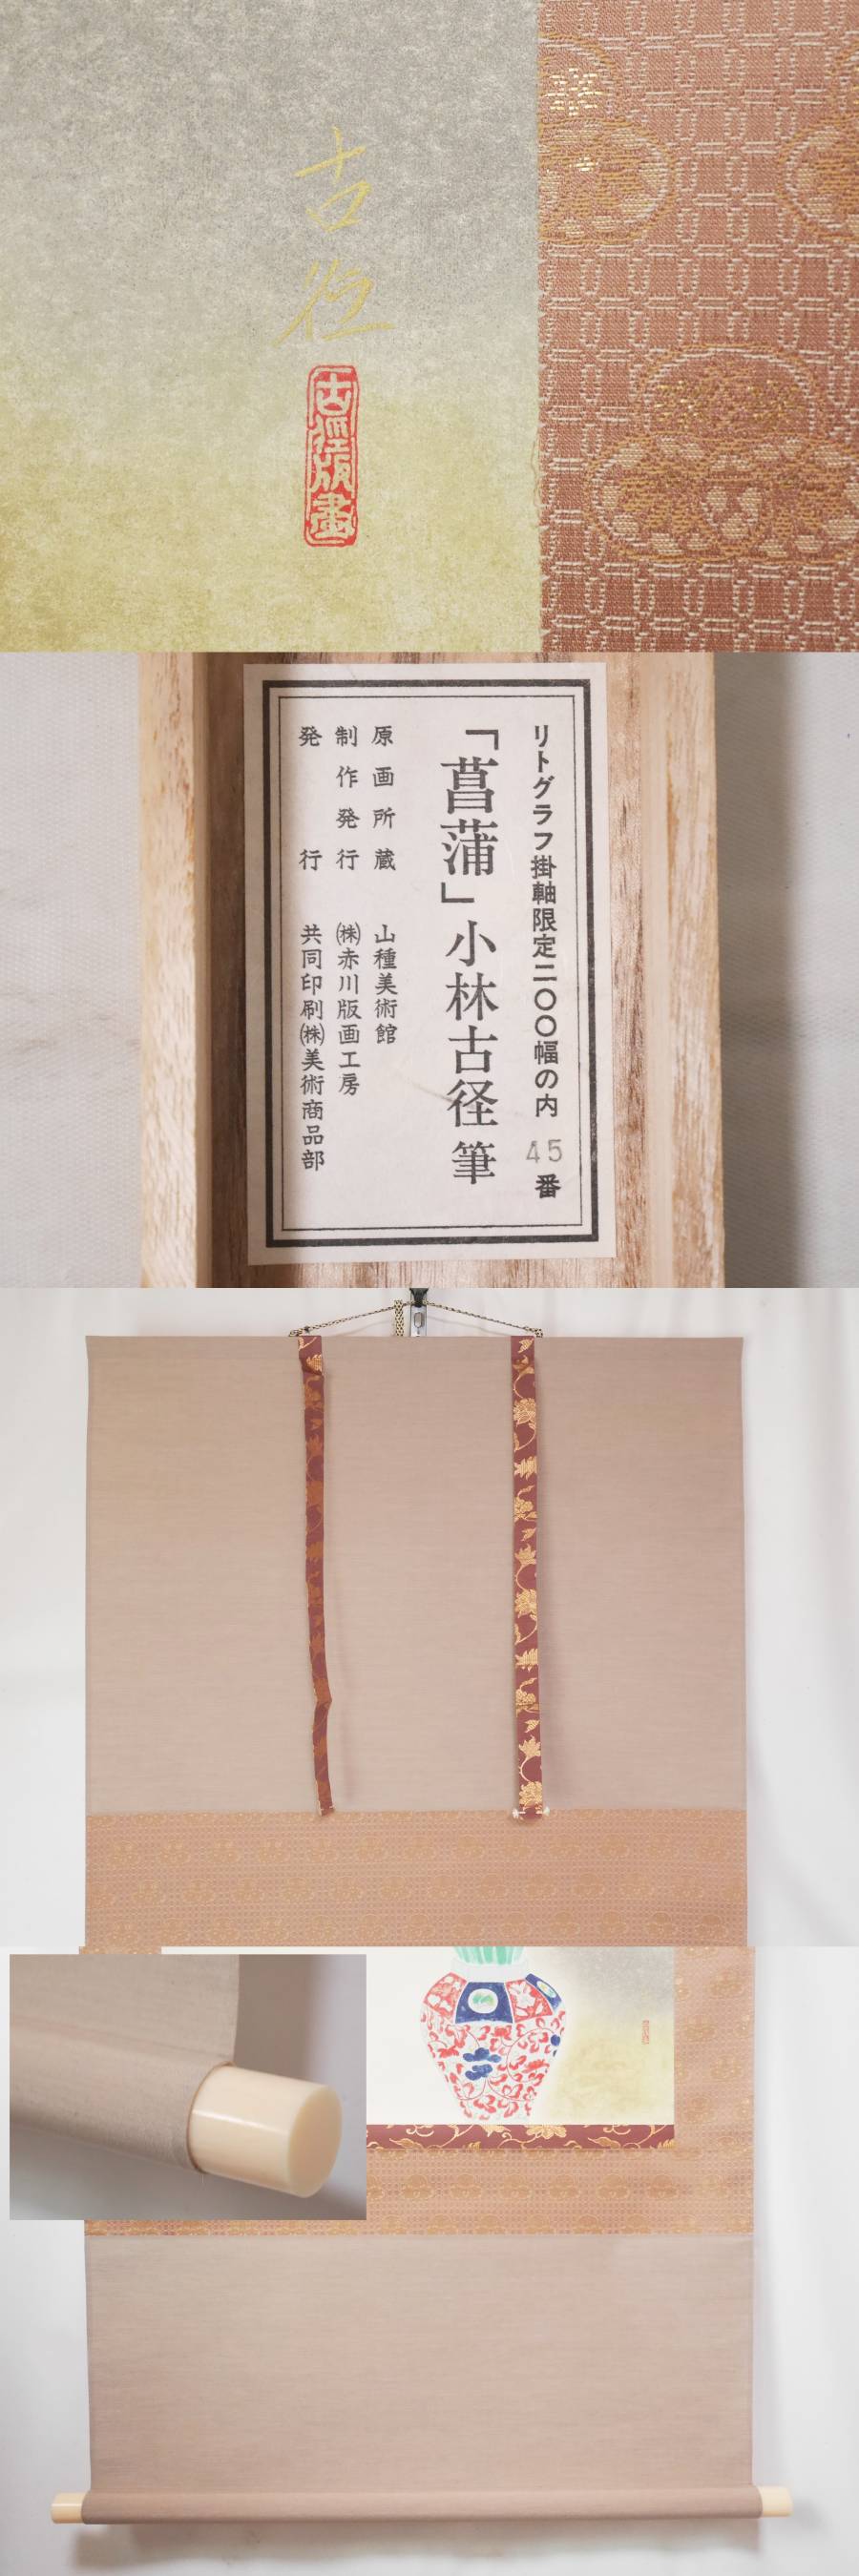 古径
古徑版畫
リトグラフ掛軸限定二〇〇幅の内 45番
「菖蒲」小林古径 筆
原画所蔵 山種美術館
制作発行 ㈱赤川版画工房
発行 共同印刷㈱美術商品部